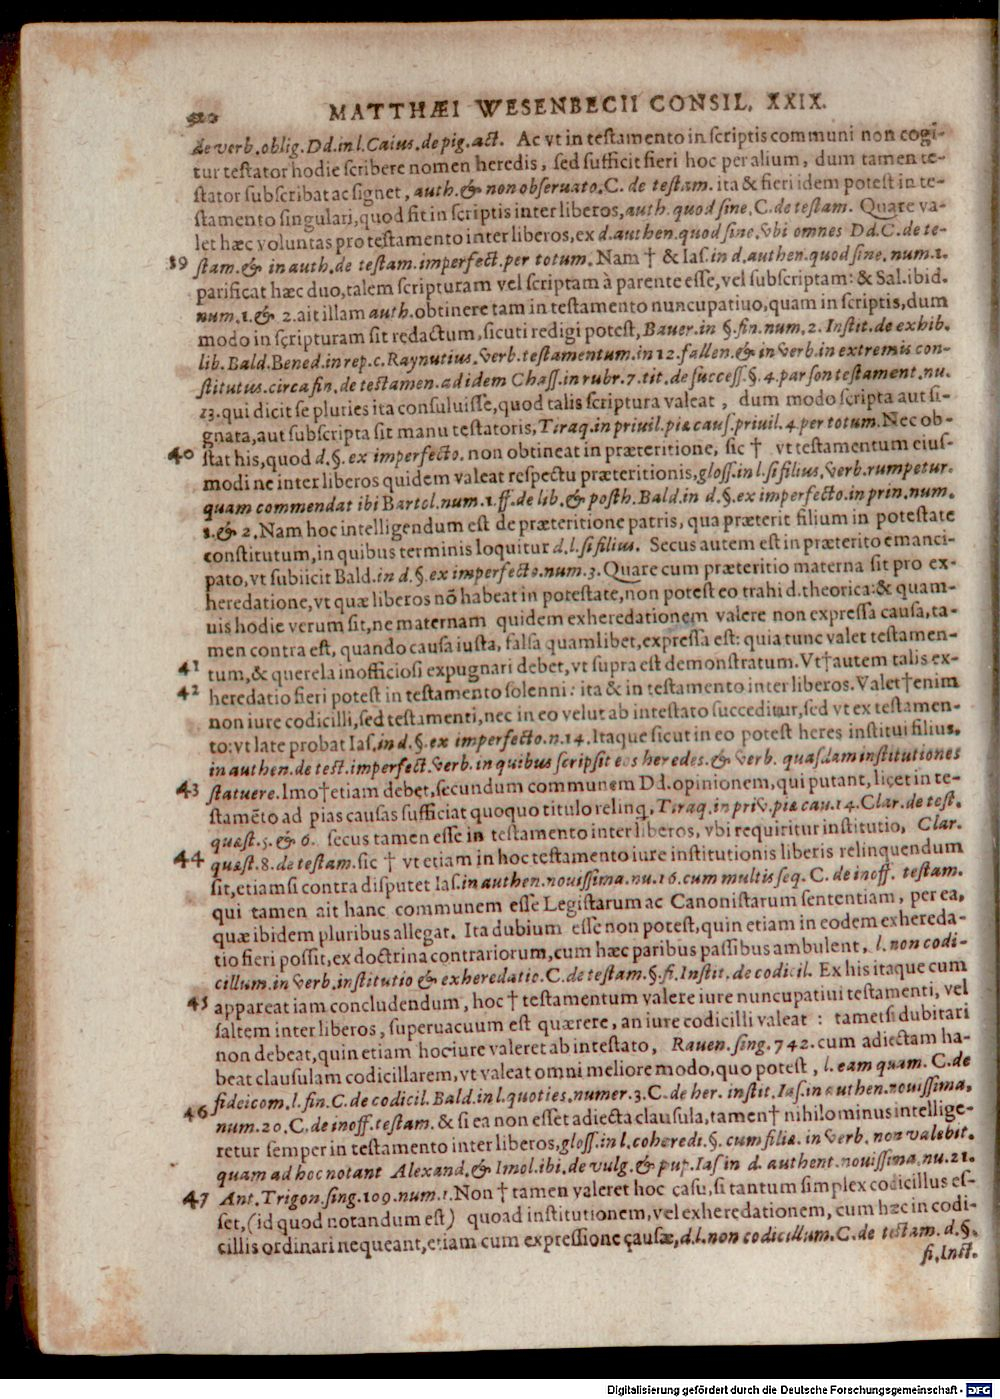 520 MATTHÆI WESENBECII CONSIL. XXIX.
de verb. oblig. Dd. in l. Caius. de pig. act. Ac vt in testamento in scriptis communi non cogi-
tur testator hodie scribere nomen heredis, sed sufficit fieri hoc per alium, dum tamen te-
stator subscribat ac signet, auth. & non obseruato. C. de testam. ita & fieri idem potest in te-
stamento singulari, quod fit in scriptis inter liberos, auth. quod sine. C. de testam. Quare va-
let hæc voluntas pro testamento inter liberos, ex d. authen. quod sine. vbi omnes Dd. C. de te-
39 stam. & in auth. de testam. imperfect. per totum. Nam † & Ias. in d. authen. quod sine. num. 1.
parificat hæc duo, talem scripturam vel scriptam à parente esse, vel subscriptam: & Sal. ibid.
num. 1. & 2. ait illam auth. obtinere tam in testamento nuncupatiuo, quam in scriptis, dum
modo in scripturam sit redactum, sicuti redigi potest, Bauer. in §. fin. num. 2. Instit. de exhib.
lib. Bald. Bened. in rep. c. Raynutius. verb. testamentum. in 12. fallen. & in verb. in extremis con-
stitutus. circa fin. de testamen. ad idem Chass. in rubr. 7. tit. de success. §. 4. par son testament. nu.
13. qui dicit se pluries ita consuluisse, quod talis scriptura valeat, dum modo scripta aut si-
gnata, aut subscripta sit manu testatoris, Tiraq. in priuil. piæ caus. priuil. 4. per totum. Nec ob-
40 stat his, quod d. §. ex imperfecto. non obtineat in præteritione, sic † vt testamentum eius-
modi ne inter liberos quidem valeat respectu præteritionis, gloss. in l. si filius. verb. rumpetur.
quam commendat ibi Bartol. num. 1. ff. de lib. & posth. Bald. in d. §. ex imperfecto. in prin. num.
1. & 2. Nam hoc intelligendum est de præteritione patris, qua præterit filium in potestate
constitutum, in quibus terminis loquitur d. l. si filius. Secus autem est in præterito emanci-
pato, vt subiicit Bald. in d. §. ex imperfecto. num. 3. Quare cum præteritio materna sit pro ex-
heredatione, vt quæ liberos nõ habeat in potestate, non potest eo trahi d. theorica: & quam-
uis hodie verum sit, ne maternam quidem exheredationem valere non expressa causa, ta-
men contra est, quando causa iusta, falsa quamlibet, expressa est: quia tunc valet testamen-
41 tum, & querela inofficiosi expugnari debet, vt supra est demonstratum. Vt † autem talis ex-
42 heredatio fieri potest in testamento solenni: ita & in testamento inter liberos. Valet † enim
non iure codicilli, sed testamenti, nec in eo velut ab intestato succeditur, sed vt ex testamen-
to: vt late probat Ias. in d. §. ex imperfecto. n. 14. Itaque sicut in eo potest heres institui filius,
in authen. de test. imperfect. verb. in quibus scripsit eos heredes. & verb. quasdam institutiones
43 statuere. Imo † etiam debet, secundum communem Dd. opinionem, qui putant, licet in te-
stamẽto ad pias causas sufficiat quoquo titulo relinq, Tiraq. in priv. piæ cau. 14. Clar. de test.
quæst. 5. & 6. secus tamen esse in testamento inter liberos, vbi requiritur institutio, Clar.
44 quæst. 8. de testam. sic † vt etiam in hoc testamento iure institutionis liberis relinquendum
sit, etiamsi contra disputet Ias. in authen. nouissima. nu. 16. cum multis seq. C. de inoff. testam.
qui tamen ait hanc communem esse Legistarum ac Canonistarum sententiam, per ea,
quæ ibidem pluribus allegat. Ita dubium esse non potest, quin etiam in eodem exhereda-
tio fieri possit, ex doctrina contrariorum, cum hæc paribus passibus ambulent, l. non codi-
cillum. in verb. institutio & exheredatio. C. de testam. §. fi. Instit. de codicil. Ex his itaque cum
45 appareat iam concludendum, hoc † testamentum valere iure nuncupatiui testamenti, vel
saltem inter liberos, superuacuum est quærere, an iure codicilli valeat : tametsi dubitari
non debeat, quin etiam hoc iure valeret ab intestato, Rauen. sing. 742. cum adiectam ha-
beat clausulam codicillarem, vt valeat omni meliore modo, quo potest, l. eam quam. C. de
fideicom. l. fin. C. de codicil. Bald. in l. quoties. numer. 3. C. de her. instit. Ias. in authen. nouissima.
46 num. 20. C. de inoff. testam. & si ea non esset adiecta clausula, tamen † nihilominus intellige-
retur semper in testamento inter liberos, gloss. in l. coheredi. §. cum filiæ. in verb. non valebit.
quam ad hoc notant Alexand. & Imol. ibi. de vulg. & pup. Ias in d. authent. nouissima. nu. 21.
47 Ant. Trigon. sing. 109. num. 1. Non † tamen valeret hoc casu, si tantum simplex codicillus es-
set, (id quod notandum est) quoad institutionem, vel exheredationem, cum hæc in codi-
cillis ordinari nequeant, etiam cum expressione causæ, d. l. non codicillum. C. de testam. d. §.
fi. Inst.
Digitalisierung gefördert durch die Deutsche Forschungsgemeinschaft - DFG